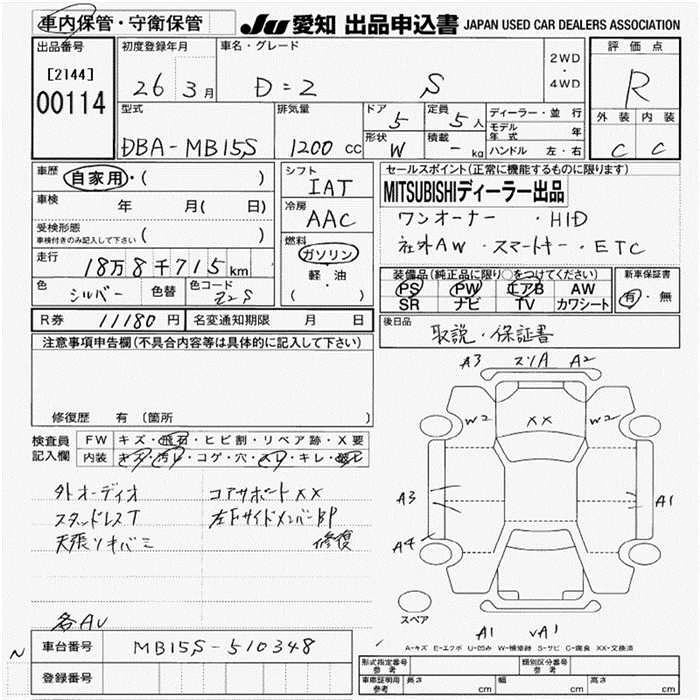 車内保管・守衛保管
JU 愛知 出品申込書 JAPAN USED CAR DEALERS ASSOCIATION
出品番号
[2144]
00114
初度登録年月
26 3月
車名・グレード
D=2 S
2WD
・
4WD
評価点
R
型式
DBA-MB15S
排気量
1200 CC
ドア
5
定員
5人
形状
W
積載
- kg
ディーラー・並行
モデル年式 年
ハンドル 左・右
外装 内装
C C
車歴
自家用・( )
車検
年 月( 日)
受検形態
車検付きのみ記入して下さい
( )
走行
18万8千715km
色
シルバー
色替
色コード
Z2S
シフト
IAT
冷房
AAC
燃料
ガソリン
軽・油
( )
セールスポイント(正常に機能するものに限ります)
MITSUBISHIディーラー出品
ワンオーナー ・HID
社外AW ・スマートキー・ETC
装備品(純正品に限り○をつけてください)
PS PW エアB AW
SR ナビ TV カワシート
新車保証書
有・無
R券 11180円
名変通知期限 月 日
後日品
取説・保証書
注意事項申告欄(不具合内容等は具体的に記入して下さい)
修復歴 有 (箇所
検査員
記入欄
FW キズ・飛石・ヒビ割・リペア跡・X要
内装 キズ・汚レ・コゲ・穴・スレ・キレ・破レ
外オーディオ
スタッドレスT
天張リキバミ
コアサポートXX
左フサイドメンバーBP
修復
各AU
A3 スリA A2
W2 XX W2
A3 A1
A4
スペア
A1 VA1
A-キズ E-エクボ U-凹み W-補修跡 S-サビ C-腐食 XX-交換済
N
車台番号 MB15S-510348
登録番号
形式指定番号
参考
類別区分番号
参考
車庫証明用
参考
長さ cm 幅 cm 高さ cm